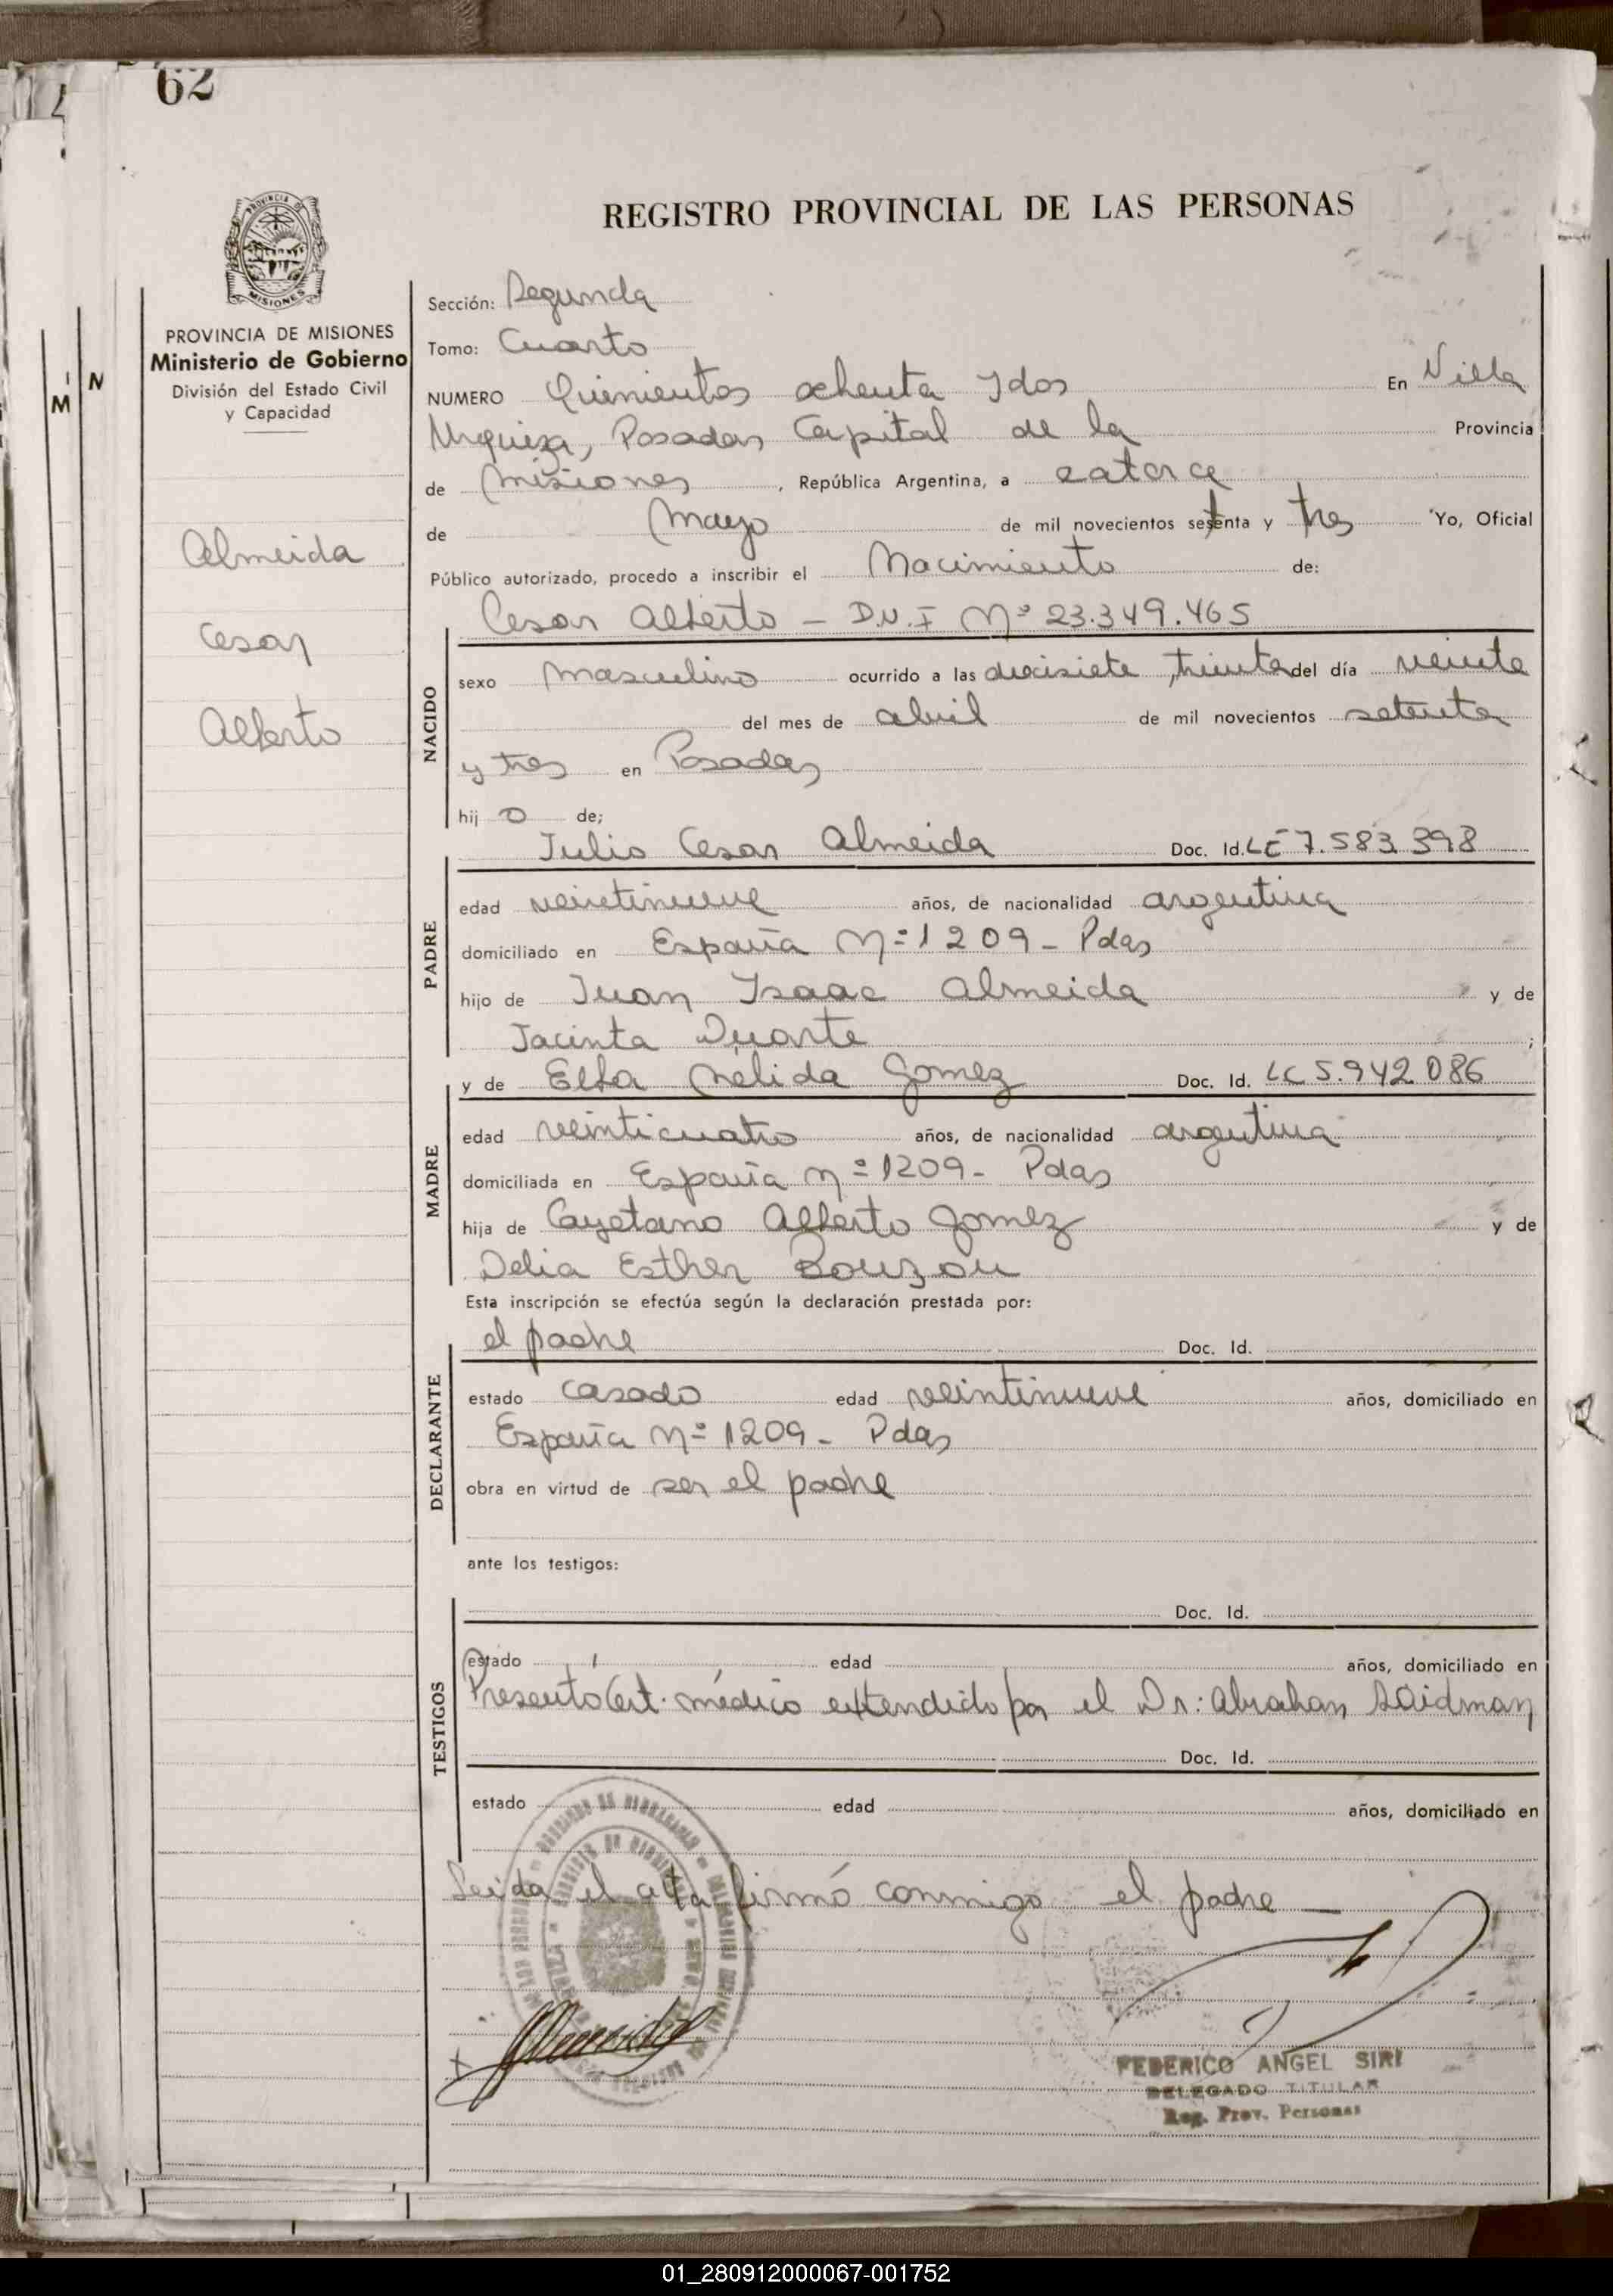 62
REGISTRO PROVINCIAL DE LAS PERSONAS
PROVINCIA DE MISIONES
Ministerio de Gobierno
División del Estado Civil
y Capacidad
Almeida
Cesar
Alberto
Sección: Segunda
Tomo: Cuarto
NUMERO Quinientos ochenta y dos En Villa
Urquiza, Posadas Capital de la Provincia
de Misiones, República Argentina, a catorce
de Mayo de mil novecientos setenta y tres Yo, Oficial
Público autorizado, procedo a inscribir el Nacimiento de:
Cesar Alberto - D.N.I Nº 23.349.465
NACIDO
sexo masculino ocurrido a las diecisiete, treinta del día veinte
del mes de abril de mil novecientos setenta
y tres en Posadas
hijo de;
Julio Cesar Almeida Doc. Id. LE 7.583.398
PADRE
edad veintinueve años, de nacionalidad argentina
domiciliado en España Nº 1209 - Pdas
hijo de Juan Isaac Almeida y de
Jacinta Duarte ;
y de Elba Nelida Gomez Doc. Id. LC 5.942.086
MADRE
edad veinticuatro años, de nacionalidad argentina
domiciliada en España nº 1209 - Pdas
hija de Cayetano Alberto Gomez y de
Delia Esther Bouzou
Esta inscripción se efectúa según la declaración prestada por:
el padre Doc. Id.
DECLARANTE
estado casado edad veintinueve años, domiciliado en
España Nº 1209 - Pdas
obra en virtud de ser el padre
ante los testigos:
Doc. Id.
TESTIGOS
estado edad años, domiciliado en
Presentó Cert. médico extendido por el Dr: Abrahan Saidman
Doc. Id.
estado edad años, domiciliado en
Leida el acta firmó conmigo el padre -
FEDERICO ANGEL SIRI
DELEGADO TITULAR
Reg. Prov. Personas
01_280912000067-001752